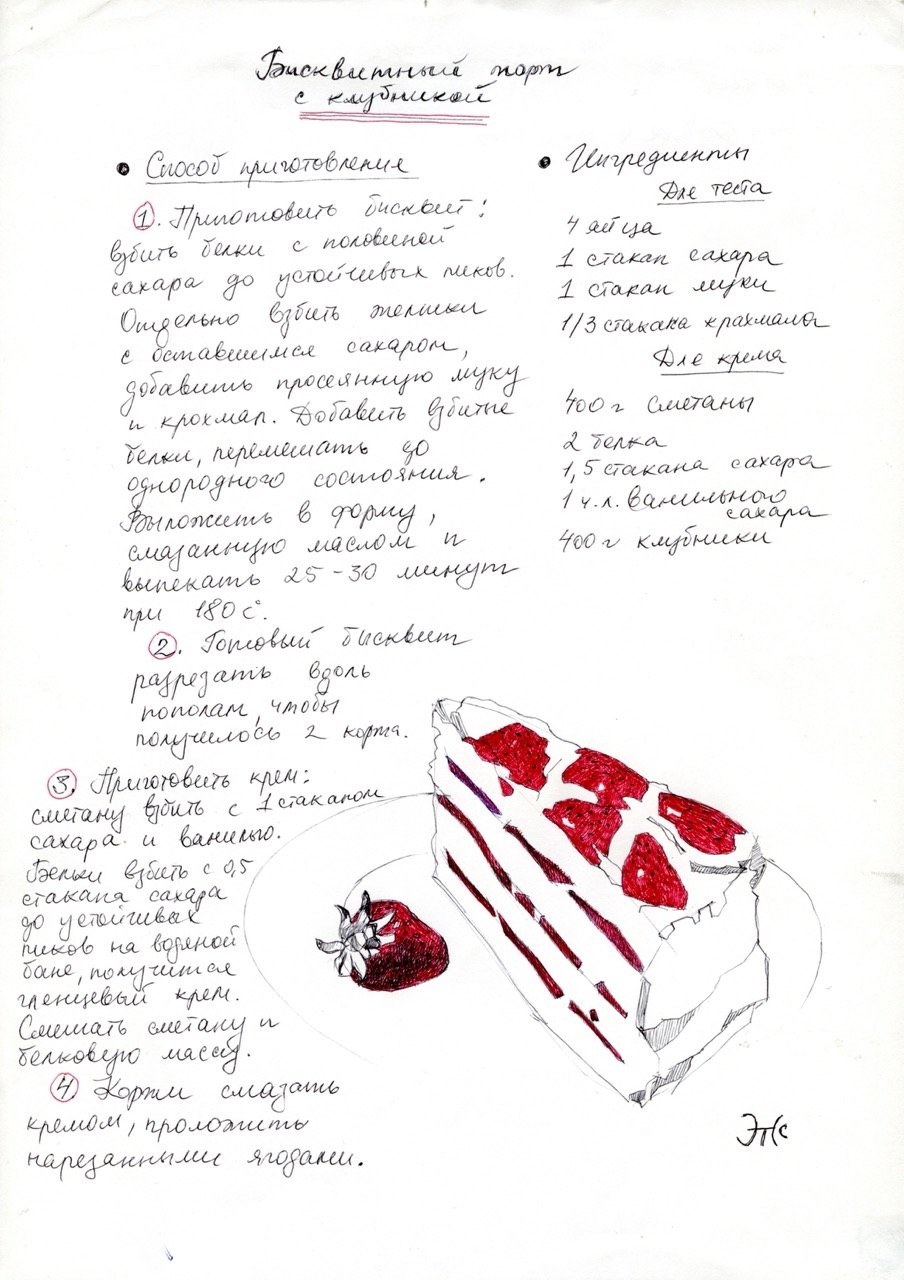 Бисквитный торт
с клубникой
• Способ приготовления
1. Приготовить бисквит:
взбить белки с половиной
сахара до устойчивых пиков.
Отдельно взбить желтки
с оставшимся сахаром,
добавить просеянную муку
и крохмал. Добавить взбитые
белки, перемешать до
однородного состояния.
Выложить в форму,
смазанную маслом и
выпекать 25-30 минут
при 180 с°
2. Готовый бисквит
разрезать вдоль
пополам, чтобы
получилось 2 коржа.
3. Приготовить крем:
сметану взбить с 1 стаканом
сахара и ванилью.
Белки взбить с 0,5
стакана сахара
до устойчивых
пиков на водяной
бане, получится
глянцевый крем.
Смешать сметану и
белковую массу.
4 Коржи смазать
кремом, проложить
нарезанными ягодами.
• Ингредиенты
Для теста
4 яйца
1 стакан сахара
1 стакан муки
1/3 стакана крахмала
Для крема
400 г сметаны
2 белка
1,5 стакана сахара
1 ч.л. ванильного
сахара
400 г клубники